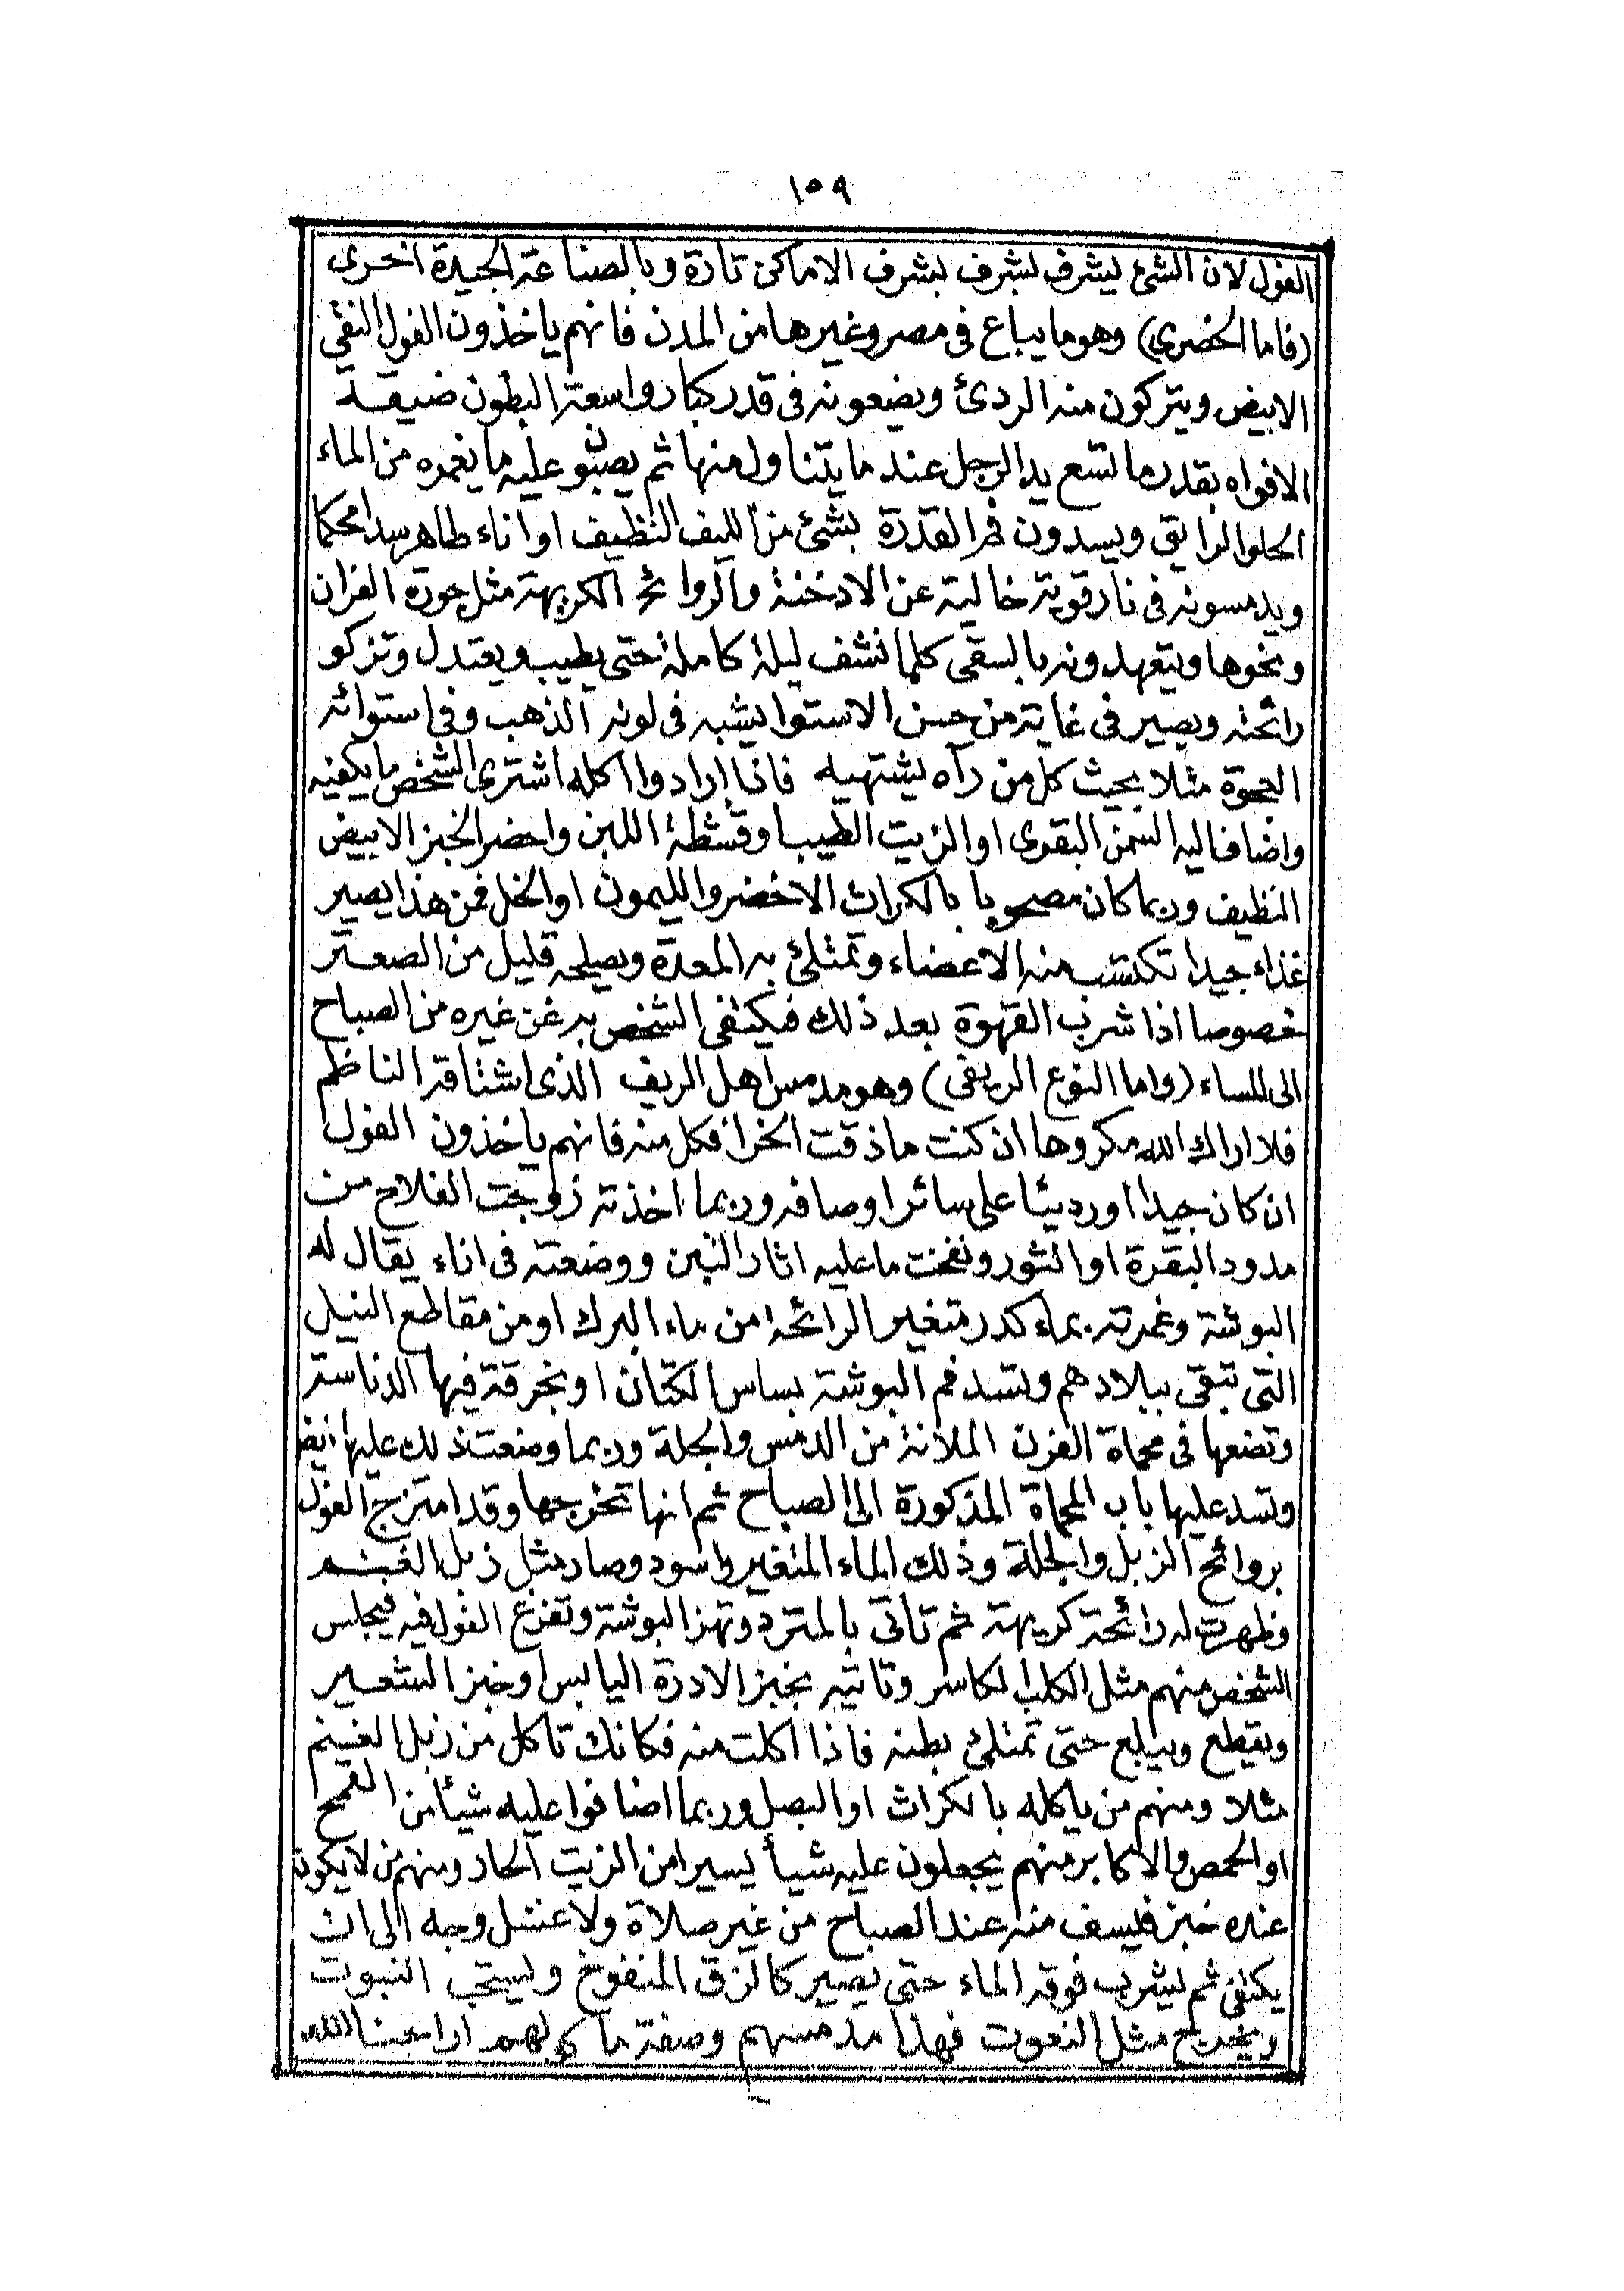 ١٥٩
الفول لان الشئ ليشرف بشرف بشرف الاماكن تارة وبالصناعة الجيدة اخرى
(فاما الحضرى) وهو ما يباع فى مصر وغيرها من المدن فانهم ياخذون الفول النقي
الابيض ويتركون منه الردئ ويضعونه فى قدر كبار واسعة البطون ضيقة
الافواه بقدر ما تسع يد الرجل عند ما يتناول منها ثم يصبون عليه ما يغمره من الماء
الحلو الرايق ويسدون فم القدرة بشئ من الليف النظيف او اناء طاهر سدا محكما
ويدمسونه فى نار قوية خالية عن الادخنة والروائح الكريهة مثل جورة الفران
ونحوها ويتعهدونه بالسقى كلما نشف ليلة كاملة حتى يطيب ويعتدل وتزكو
رائحته ويصير فى غاية من حسن الاستوا يشبه فى لونه الذهب وفى استوائه
العجوة مثلا بحيث كل من رآه يشتهيه فاذا ارادوا اكله اشترى الشخص ما يكفيه
واضاف اليه السمن البقرى او الزيت الطيب او قشطة اللبن واحضر الخبز الابيض
النظيف وربما كان مصحوبا بالكراث الاخضر والليمون او الخل فمن هذا يصير
غذاء جيدا تكتسب منه الاعضاء وتمتلئ به المعدة ويصلحه قليل من الصعتر
خصوصا اذا شرب القهوة بعد ذلك فيكتفى الشخص به عن غيره من الصباح
الى المساء (واما النوع الريفى) وهو مدمس اهل الريف الذى اشتاقه الناظم
فلا اراك الله مكروها ان كنت ما ذقت الخرا فكل منه فانهم ياخذون الفول
ان كان جيدا اورديئا على سائر اوصافه وربما اخذته زوجت الفلاح من
مدود البقرة او الثور ونفخت ما عليه اثار التبن ووضعته فى اناء يقال له
البوشة وغمرته بماء كدر متغير الرائحة من ماء البرك او من مقاطع النيل
التى تبقى ببلادهم وتسد فم البوشة بساس الكتان او بخرقة فيها الدناسة
وتضعها فى محماة الفرن الملانة من الدمس والجلة وربما وضعت ذلك عليها ايضا
وتسد عليها باب المحماة المذكورة الى الصباح ثم انها تخرجها وقد امتزج الفول
بروائح الزبل والجلة وذلك الماء المتغير واسود وصار مثل زبل الغنم
وظهرت له رائحة كريهة ثم تاتى بالمترد وتهز البوشة وتفرغ الفول فيه فيجلس
الشخص منهم مثل الكلب الكاسر وتاتيه بخبز الادرة اليابس او خبز الشعير
ويقطع ويبلع حتى تمتلئ بطنه فاذا اكلت منه فكانك تاكل من زبل الغنم
مثلا ومنهم من ياكله بالكراث او البصل وربما اضافوا عليه شيأ من القمح
او الحمص والاكابر منهم يجعلون عليه شيأ يسيرا من الزيت الحار ومنهم من لا يكون
عنده خبز فيسف منه عند الصباح من غير صلاة ولا غسل وجه الى ان
يكتفى ثم يشرب فوقه الماء حتى يصير كالزق المنفوخ ويسحب النبوت
ويخرج مثل النعوت فهذا مدمسهم وصفة ماكولهم اراحنا الله